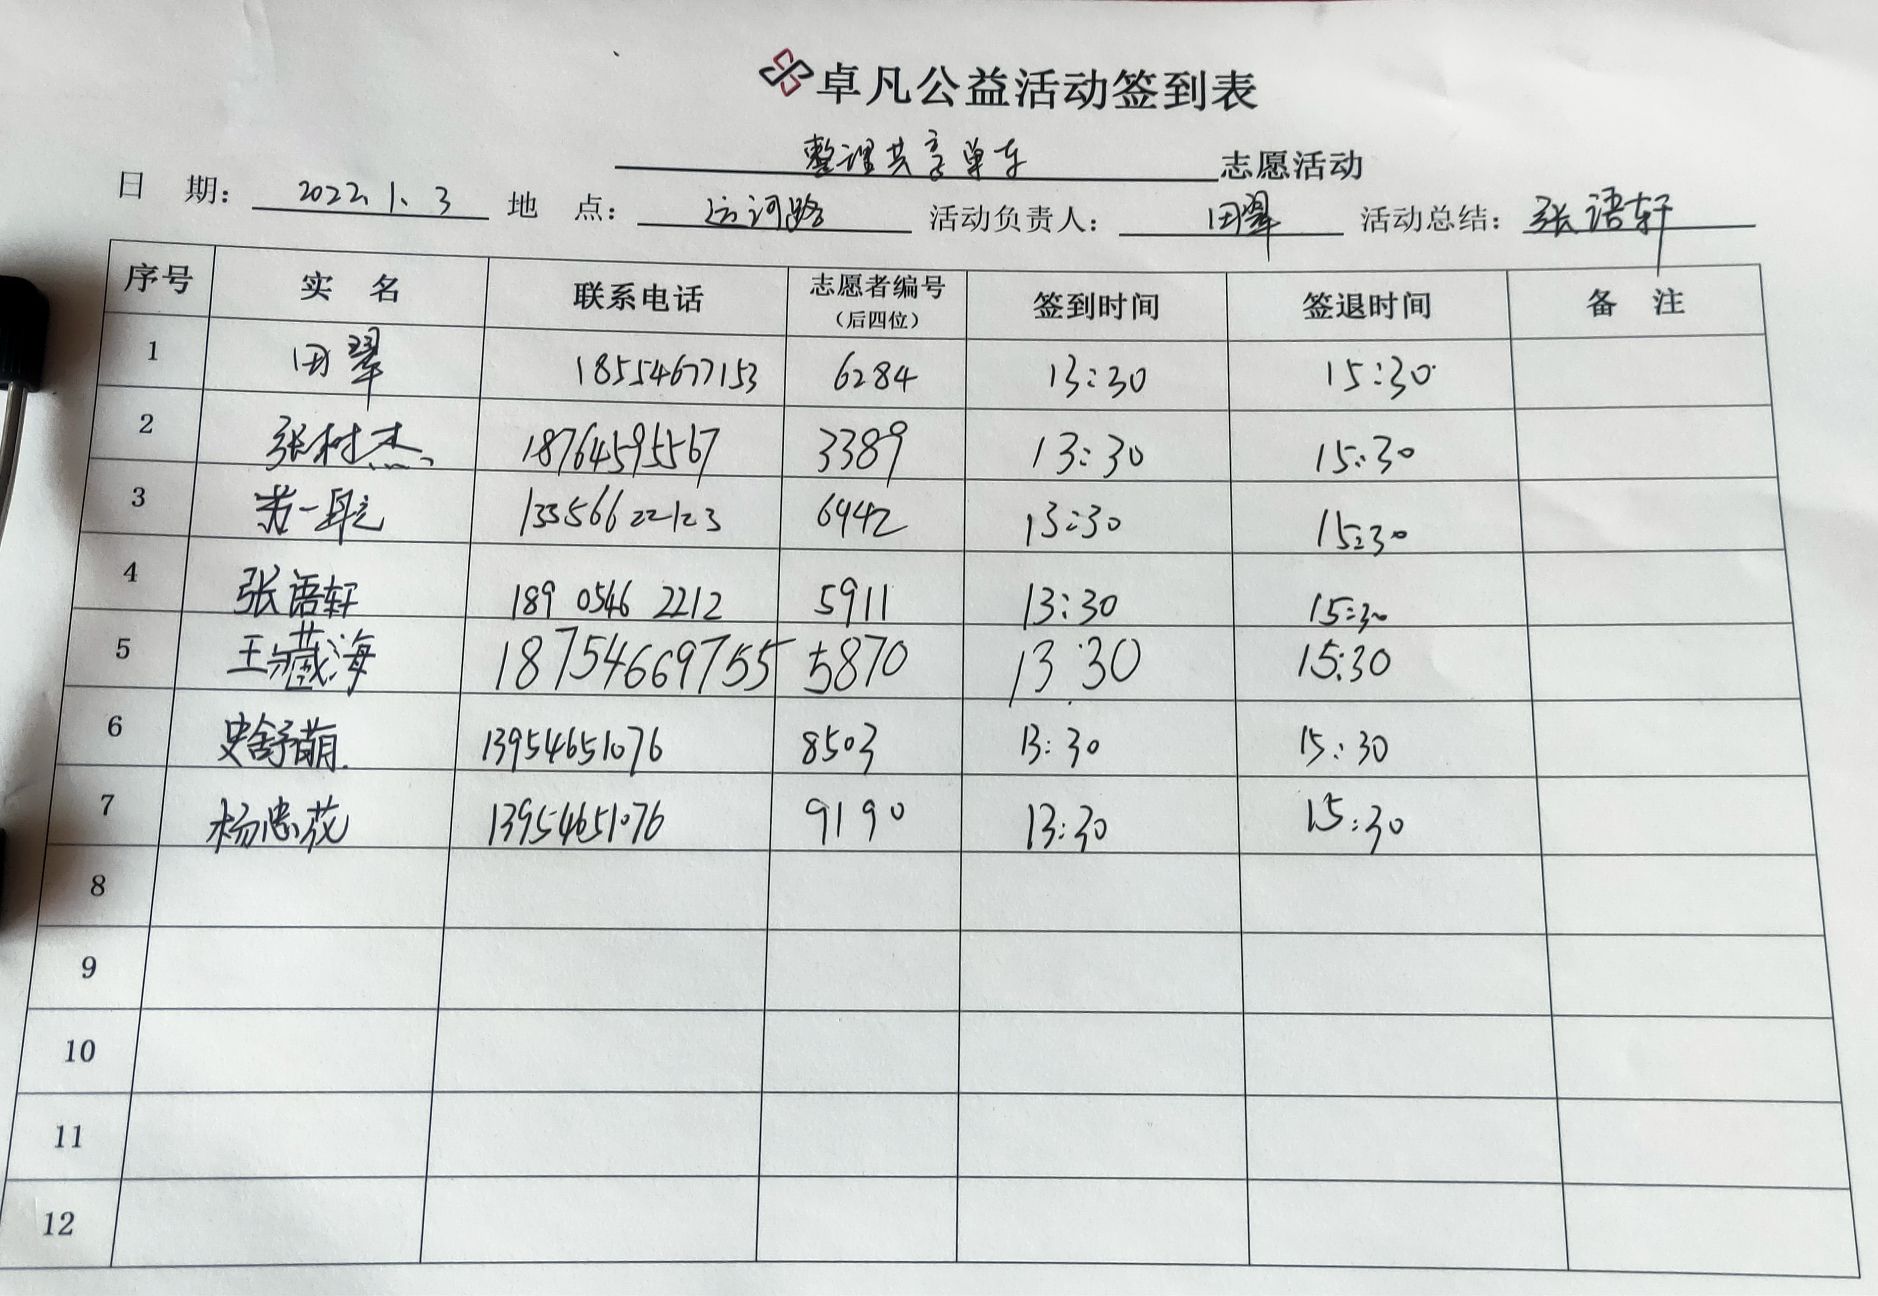 卓凡公益活动签到表
整理共享单车 志愿活动
日 期: 2022.1.3 地 点: 运河路 活动负责人: 田翠 活动总结: 张语轩
序号 实 名 联系电话 志愿者编号(后四位) 签到时间 签退时间 备 注
1 田翠 18554677153 6284 13:30 15:30
2 张树杰 18764595567 3389 13:30 15:30
3 13356622123 6442 13:30 15:30
4 张语轩 189 0546 2212 5911 13:30 15:30
5 王藏海 18754669755 5870 13:30 15:30
6 史舒萌 13954651076 8503 13:30 15:30
7 杨忠花 13954651076 9190 13:30 15:30
8
9
10
11
12